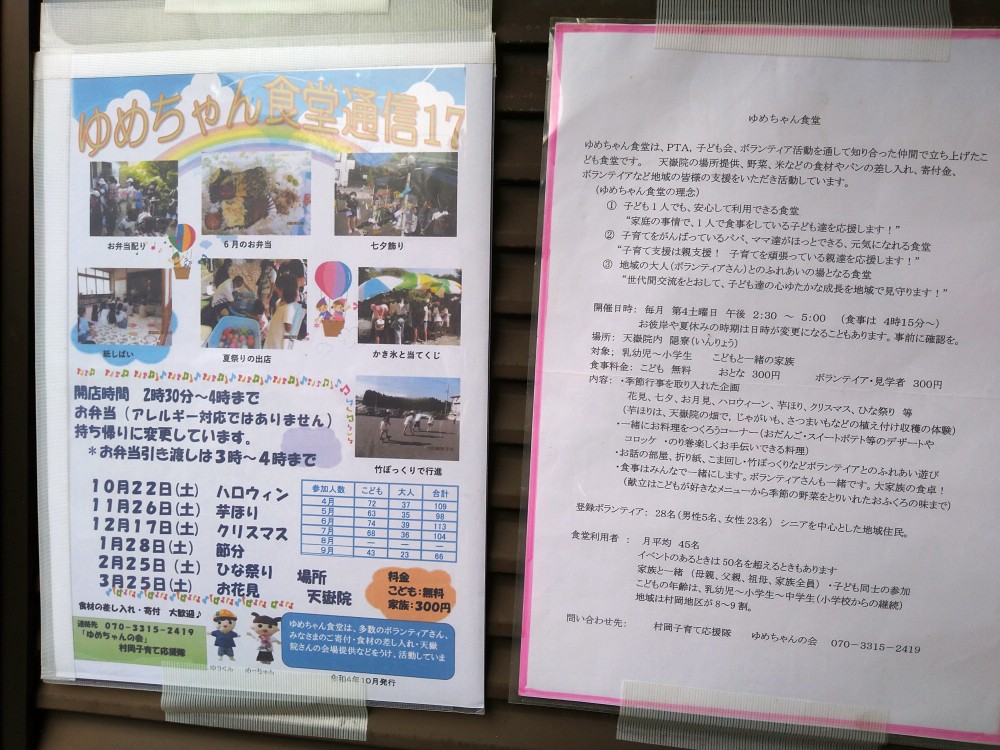 ゆめちゃん食堂通信17
お弁当配り♪
6月のお弁当
七夕飾り
紙しばい
夏祭りの出店
かき氷と当てくじ
開店時間 2時30分～4時まで
お弁当（アレルギー対応ではありません）
持ち帰りに変更しています。
＊お弁当引き渡しは3時～4時まで
竹ぽっくりで行進
10月22日(土) ハロウィン
11月26日(土) 芋ほり
12月17日(土) クリスマス
1月28日(土) 節分
2月25日(土) ひな祭り
3月25日(土) お花見
参加人数 こども 大人 合計
4月 72 37 109
5月 63 35 98
6月 74 39 113
7月 68 36 104
8月 — — —
9月 43 23 66
場所
天嶽院
料金
こども:無料
家族:300円
食材の差し入れ・寄付 大歓迎♪
連絡先 070-3315-2419
「ゆめちゃんの会」
村岡子育て応援隊
ゆめちゃん食堂は、多数のボランティアさん、
みなさまのご寄付・食材の差し入れ・天嶽
院さんの会場提供などをうけ、活動していま
10月発行
ゆめちゃん食堂
ゆめちゃん食堂は、PTA、子ども会、ボランティア活動を通して知り合った仲間で立ち上げたこ
ども食堂です。 天嶽院の場所提供、野菜、米などの食材やパンの差し入れ、寄付金、
ボランティアなど地域の皆様の支援をいただき活動しています。
（ゆめちゃん食堂の理念）
① 子ども1人でも、安心して利用できる食堂
“家庭の事情で、1人で食事をしている子ども達を応援します！”
② 子育てをがんばっているパパ、ママ達がほっとできる、元気になれる食堂
“子育て支援は親支援！ 子育てを頑張っている親達を応援します！”
③ 地域の大人（ボランティアさん）とのふれあいの場となる食堂
“世代間交流をとおして、子ども達の心ゆたかな成長を地域で見守ります！”
開催日時： 毎月 第4土曜日 午後 2:30 ～ 5:00 （食事は 4時15分～）
お彼岸や夏休みの時期は日時が変更になることもあります。事前に確認を。
場所： 天嶽院内 隠寮（いんりょう）
対象； 乳幼児～小学生 こどもと一緒の家族
食事料金： こども 無料 おとな 300円 ボランティア・見学者 300円
内容： ・季節行事を取り入れた企画
花見、七夕、お月見、ハロウィーン、芋ほり、クリスマス、ひな祭り 等
（芋ほりは、天嶽院の畑で、じゃがいも、さつまいもなどの植え付け収穫の体験）
・一緒にお料理をつくろうコーナー（おだんご・スイートポテト等のデザートや
コロッケ ・のり巻楽しくお手伝いできる料理）
・お話の部屋、折り紙、こま回し・竹ぽっくりなどボランティアとのふれあい遊び
・食事はみんなで一緒にします。ボランティアさんも一緒です。大家族の食卓！
（献立はこどもが好きなメニューから季節の野菜をとりいれたおふくろの味まで）
登録ボランティア： 28名（男性5名、女性23名） シニアを中心とした地域住民。
食堂利用者 ： 月平均 45名
イベントのあるときは50名を超えるときもあります
家族と一緒 （母親、父親、祖母、家族全員）・子ども同士の参加
こどもの年齢は、乳幼児～小学生～中学生（小学校からの継続）
地域は村岡地区が8～9割。
問い合わせ先： 村岡子育て応援隊 ゆめちゃんの会 070-3315-2419